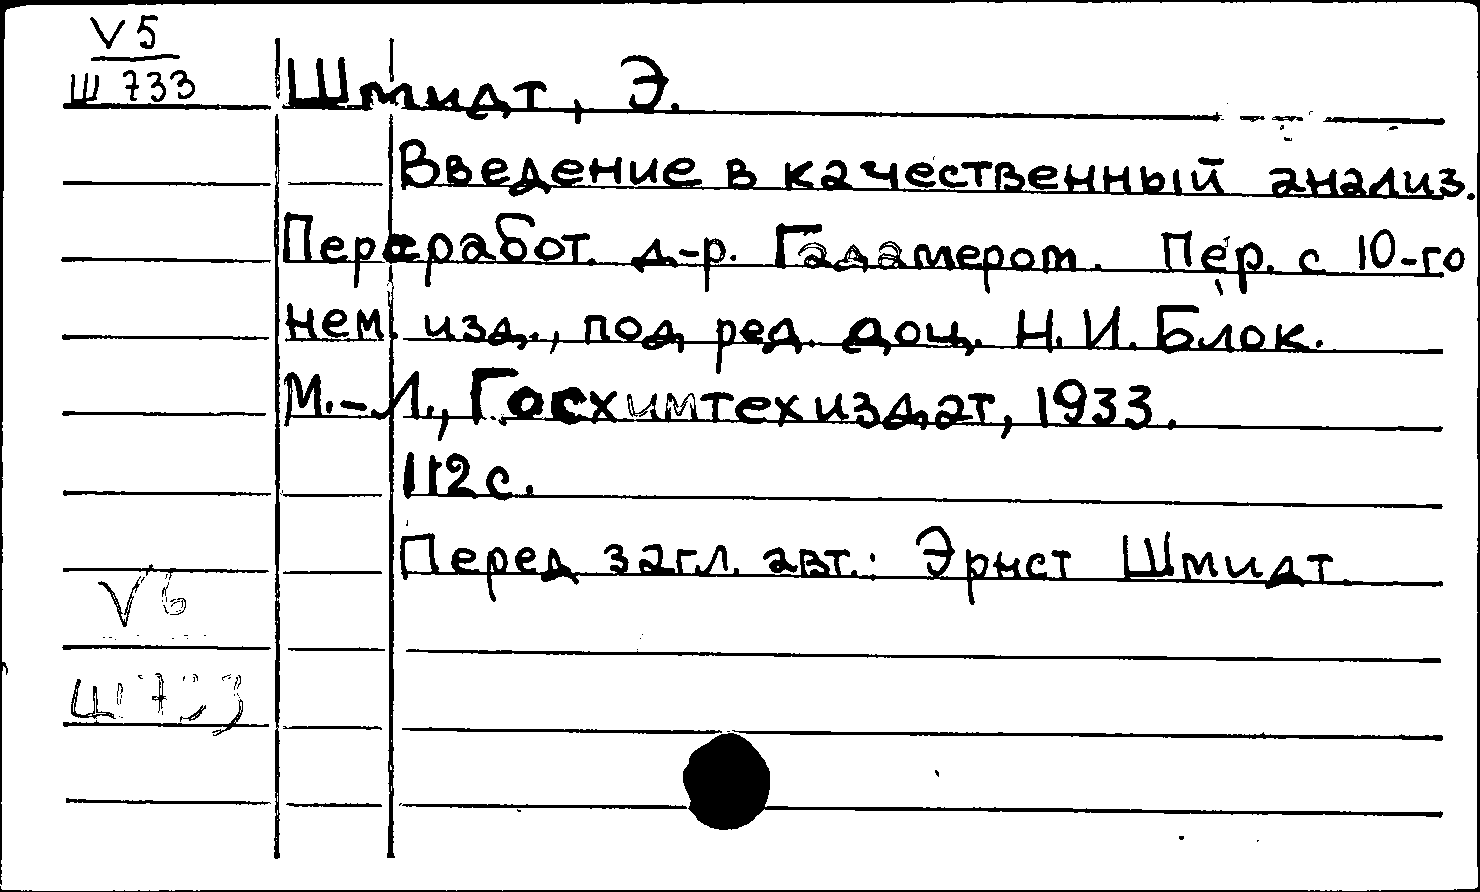 V5
Ш 733
Шмидт, Э.
Введение в качественный анализ.
Переработ. д-р. Гадамером. Пер. с 10-го
нем. изд., под ред. доц. Н. И. Блок.
М.-Л., Госхимтехиздат, 1933.
112 с.
Перед загл. авт.: Эрнст Шмидт.
V6
Ш 733